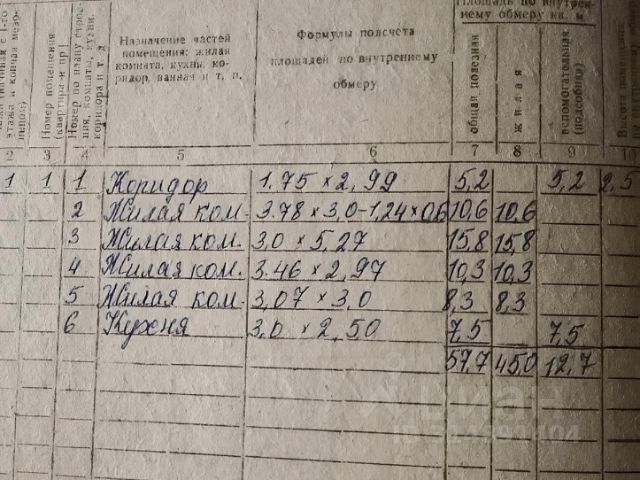 Площадь по внутрен-
нему обмеру кв. м
этажа и кончая
Номер помещения
(квартира и пр.)
Номер по плану строе-
ния, комнаты, кухни,
коридора и т. д.
Назначение частей
помещения: жилая
комната, кухня, ко-
ридор, ванная и т. п.
Формулы подсчета
площадей по внутреннему
обмеру
общая полезная
жилая
вспомогательная
(подсобная)
2 3 4 5 6 7 8 9 10
1 1 1 Коридор 1.75 × 2,99 5,2 5,2 2,5
2 Жилая ком. 3.78 × 3,0-1,24 × 0,6 10,6 10,6
3 Жилая ком. 3,0 × 5,27 15,8 15,8
4 Жилая ком. 3.46 × 2,97 10,3 10,3
5 Жилая ком. 3,07 × 3,0 8,3 8,3
6 Кухня 3,0 × 2,50 7,5 7,5
57,7 45,0 12,7
циан